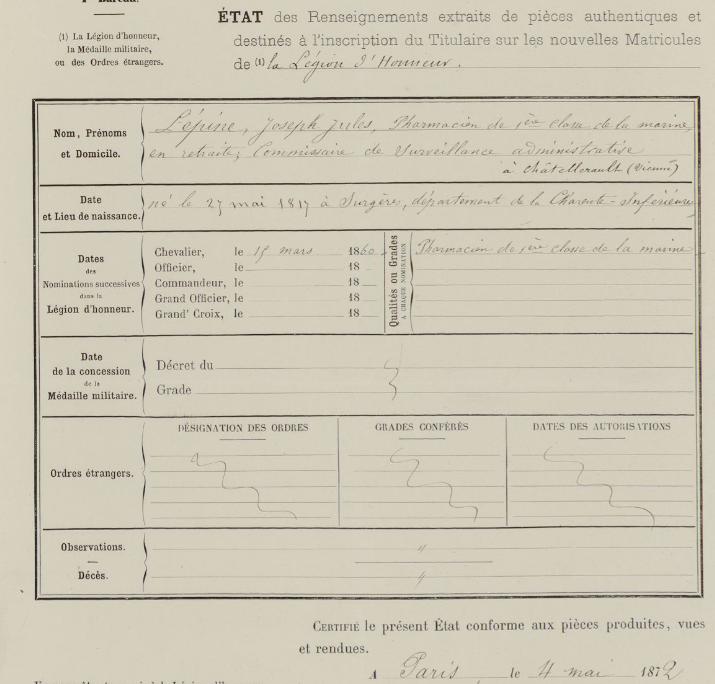 Bureau.
(1) La Légion d'honneur,
la Médaille militaire,
ou des Ordres étrangers.
ÉTAT des Renseignements extraits de pièces authentiques et
destinés à l'inscription du Titulaire sur les nouvelles Matricules
de (1) la Légion d'Honneur.
Nom, Prénoms
et Domicile.
Lépine, Joseph Jules, Pharmacien de 1ère classe de la marine,
en retraite, Commissaire de Surveillance administrative
à Châtellerault (Vienne)
Date
et Lieu de naissance.
né le 27 mai 1817 à Surgères, département de la Charente-Inférieure
Dates
des
Nominations successives
dans la
Légion d'honneur.
Chevalier, le 15 mars 1860
Officier, le 18
Commandeur, le 18
Grand Officier, le 18
Grand' Croix, le 18
Qualités ou Grades
A CHAQUE NOMINATION
Pharmacien de 1ère classe de la marine
Date
de la concession
de la
Médaille militaire.
Décret du
Grade
Ordres étrangers.
DÉSIGNATION DES ORDRES
GRADES CONFÉRÉS
DATES DES AUTORISATIONS
Observations.
"
Décès.
"
CERTIFIÉ le présent État conforme aux pièces produites, vues
et rendues.
A Paris le 4 mai 1872